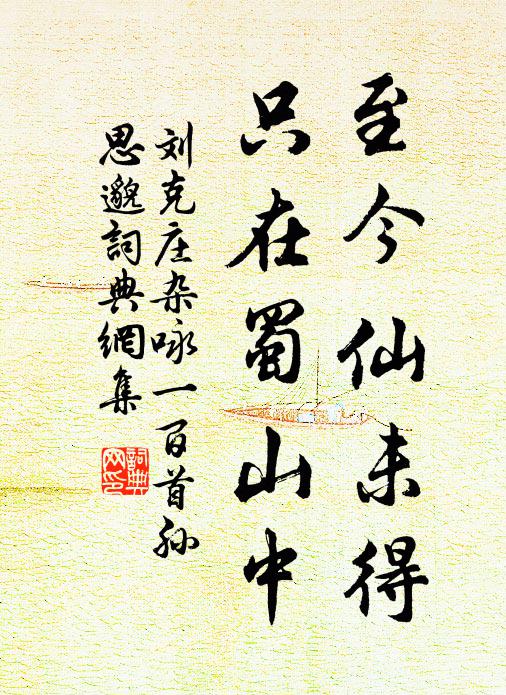 至今仙未得
只在蜀山中
刘克庄杂咏一百首孙
思邈词典網集
詞典網印